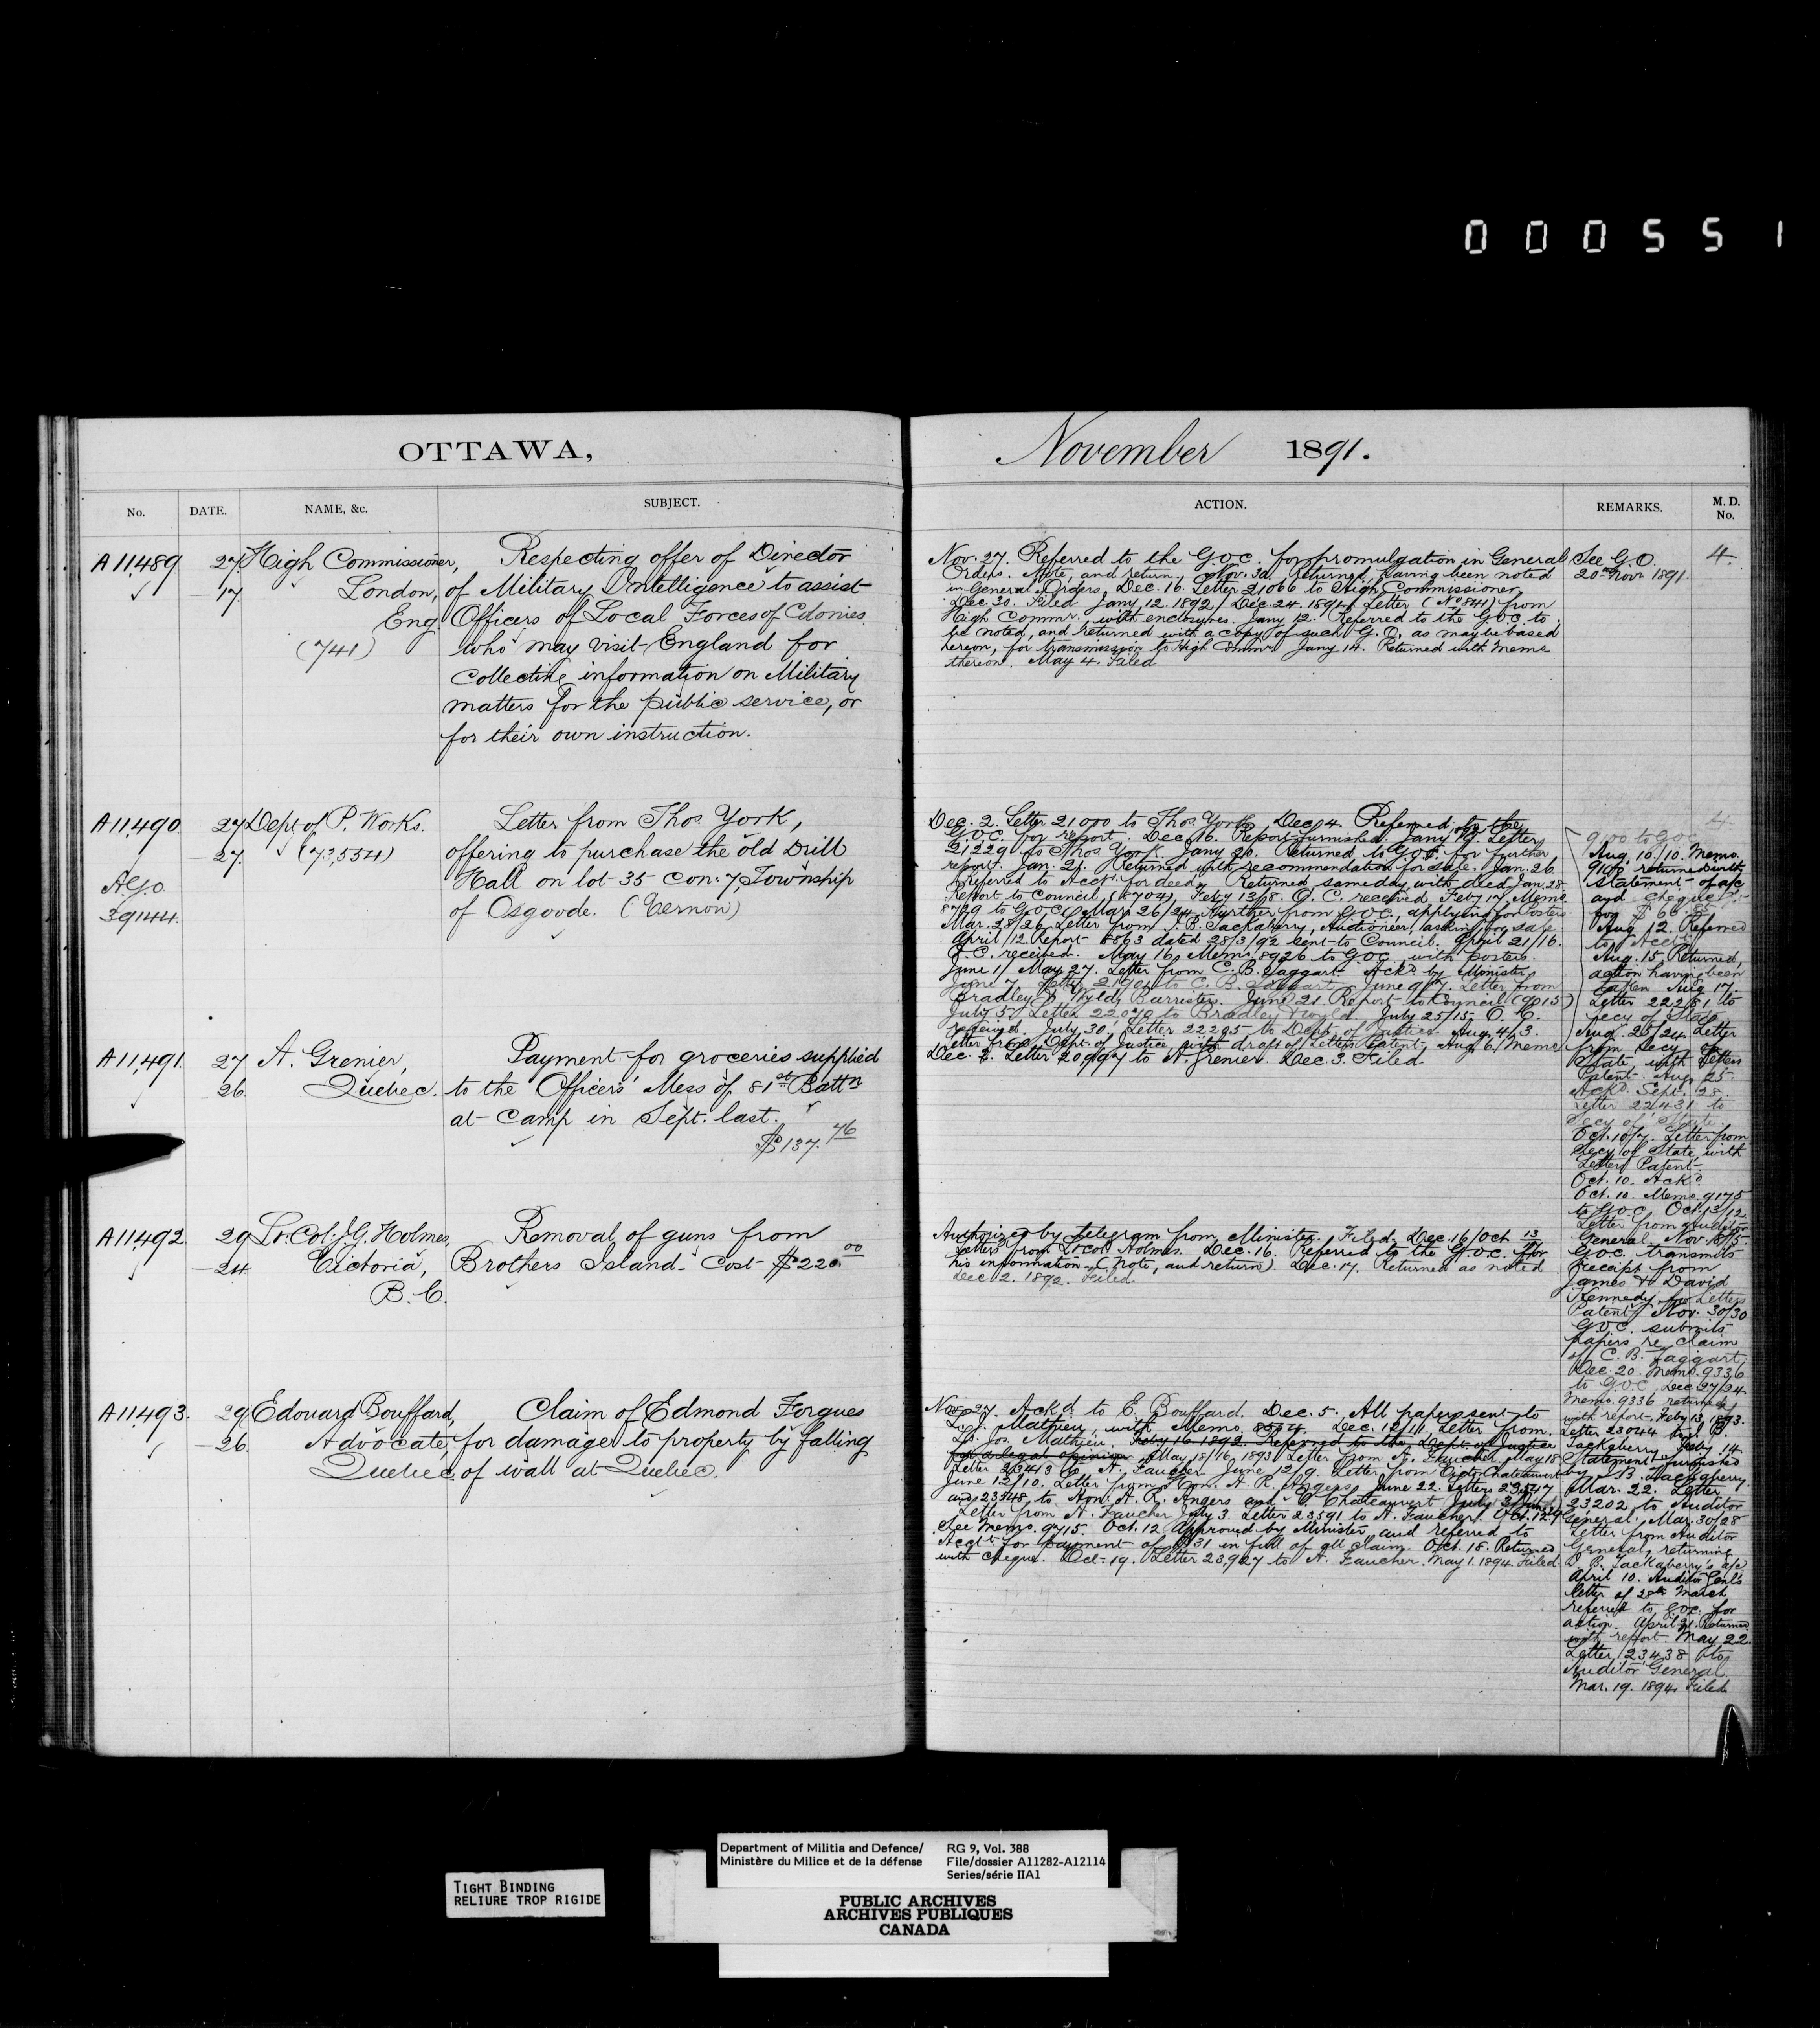 000551
OTTAWA,
No.
DATE.
NAME, &c.
SUBJECT.
A11489
27
17
High Commissioner,
London,
Eng.
(741)
Respecting offer of Director
of Military Intelligence to assist
Officers of Local Forces of Colonies
who may visit England for
collecting information on Military
matters for the public service, or
for their own instruction.
A11490
27
27
A.G.O.
39144
Dept of P. Works.
(73,554)
Letter from Thos York,
offering to purchase the old Drill
Hall on lot 35 Con: 7, Township
of Osgoode. (Vernon)
A11491
27
26
A. Grenier,
Quebec.
Payment for groceries supplied
to the Officers' Mess of 81st Battn
at camp in Sept. last.
$137.76
A11492
29
24
Lt. Col: J.G. Holmes,
Victoria,
B.C.
Removal of guns from
Brothers Island. Cost $220.00
A11493.
29
26
Edouard Bouffard,
Advocate,
Quebec.
Claim of Edmond Forgues
for damage to property by falling
of wall at Quebec.
November 1891.
ACTION.
REMARKS.
M. D.
No.
Nov. 27. Referred to the G.O.C. for promulgation in General
Orders. Note, and return. Nov. 30. Returned, having been noted
in General Orders, Dec. 16. Letter 21066 to High Commissioner
Dec. 30. Filed Jany 12. 1892/Dec. 24. 1891. Letter (No 841) from
High Commr, with enclosures. Jany 12. Referred to the G.O.C. to
be noted, and returned with a copy of such G.O. as may be based
hereon, for transmission to High Commr Jany 14. Returned with memo
thereon. May 4. Filed
See G.O.
20th Nov. 1891.
4.
Dec. 2. Letter 21000 to Thos York. Dec. 4. Referred to the
G.O.C. for report. Dec. 16. Report furnished. Jany Letter
21229 to Thos York Jany 20. Returned to G.O.C. for further
report. Jan. 21. Returned with recommendation for sale. Jan. 26
Referred to Acct for deed. Returned same day with deed, Jan. 28
Report to Council (8704), Feby 13/98. O.C. received Feby 17. Memo
8729 to G.O.C. Mar. 26/24. Further from G.O.C., applying for posters
Mar. 28/26. Letter from J. B. Jackaberry, Auctioneer, asking for sale
April/12. Report 8863 dated 28/3/92 sent to Council. April 21/16.
O.C. received. May 16. Memo 8926 to G.O.C. with posters.
June 1/May 27. Letter from C. B. Taggart. Ackd by Minister
June 7. Letter 21901 to C. B. Taggart. June 9/7. Letter from
Bradley & Wyld, Barristers. June 21. Report to Council (9015)
July 5. Letter 22070 to Bradley & Wyld July 25/15. O.C.
received. July 30. Letter 22295 to Dept. of Justice. Aug. 4/3.
Letter from Dept. of Justice, with draft of Letters Patent, Aug. 6. Memo
9100 to G.O.C.
Aug. 10/10. Memo.
9100 returned with
statement of a/c
and cheque
for $66
Aug. 12. Referred
to Acct
Aug. 15. Returned,
action having been
taken Aug. 17.
Letter 22281 to
Secy of State
Aug. 25/24. Letter
from Secy of
State with Letters
Patent. Aug. 25.
Ackd. Sept. 28.
Letter 22431 to
Secy of State
Oct. 10/7. Letter from
Secy of State, with
Letters Patent.
Oct. 10. Ackd
Oct. 10. Memo. 9175
to G.O.C. Oct. 13/12.
Letter from Auditor
General. Nov.
G.O.C. transmits
receipt from
James & David
Kennedy for Letters
Patent, Nov. 30/30
G.O.C. submits
papers re claim
of C. B. Taggart.
Dec. 20. Memo. 9336
to G.O.C. Dec. 27/24
Memo. 9336 returned
with report. Feby 13, 1893.
Letter 23044 to J. B.
Jackaberry. Feby 14.
Statement furnished
by J. B. Jackaberry
Mar. 22. Letter
23202 to Auditor
General. Mar. 30/28
Letter from Auditor
General, returning
J. B. Jackaberry's a/c
April 10. Auditor Genl's
letter of 28th March
referred to G.O.C. for
action. April 21. Returned
with report. May 22.
Letter 23438 to
Auditor General
Mar. 19. 1894. Filed
Dec. 2. Letter 20997 to A. Grenier. Dec. 3. Filed
Authorized by telegram from Minister. Filed. Dec. 16/Oct 13/17
Letters from Lt Col Holmes. Dec. 16. Referred to the G.O.C. for
his information. (Note, and return). Dec. 17. Returned as noted
Dec 2. 1892. Filed.
Nov. 27. Ackd to E. Bouffard. Dec. 5. All papers sent to
Jos. Mathieu, with Memo 8554. Dec. 12/11. Letter from
Lt. Jos. Mathieu. Feby 16. 1892. Referred to the Dept. of Justice
for a legal opinion. May 18/16, 1893. Letter from A. Faucher. May 18
Letter 23413 to A. Faucher June 12/9. Letter from Victor Chateauvert
June 12/10. Letter from Hon. A. R. Angers June 22. Letters 23547
and 23548 to Hon. A. R. Angers and V. Chateauvert July 3/June
Letter from A. Faucher July 3. Letter 23591 to A. Faucher. Oct. 12.
See Memo. 9715. Oct. 12 Approved by Minister, and referred to
Acct for payment of $31 in full of all claim. Oct. 18. Returned
with cheque. Oct. 19. Letter 23927 to A. Faucher. May 1. 1894. Filed.
TIGHT BINDING
RELIURE TROP RIGIDE
Department of Militia and Defence/
Ministère du Milice et de la défense
RG 9, Vol. 388
File/dossier A11282-A12114
Series/série IIA1
PUBLIC ARCHIVES
ARCHIVES PUBLIQUES
CANADA